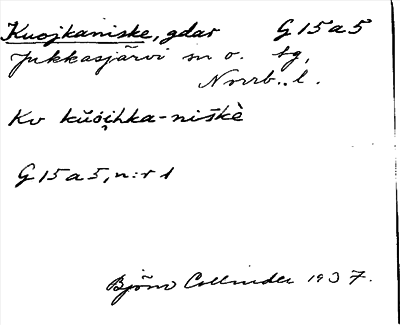 Kuojkaniske, gdar G 15 a 5
Jukkasjärvi sn o. tg,
Norrb. l.
Kv kŭo̭i̭hka-niškè
G 15 a 5, n:r 1
Björn Collinder 1937.